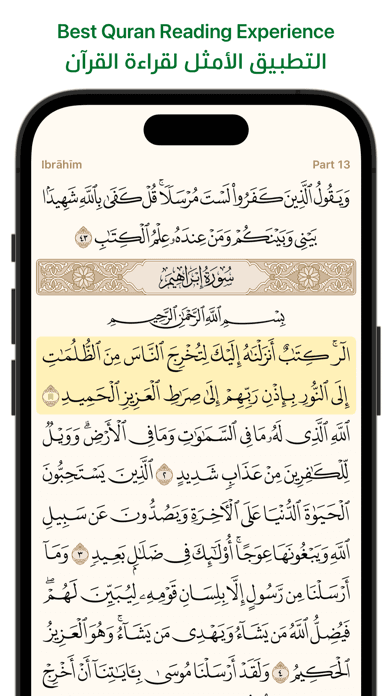 Best Quran Reading Experience
التطبيق الأمثل لقراءة القرآن
Ibrāhīm Part 13
وَيَقُولُ ٱلَّذِينَ كَفَرُوا۟ لَسْتَ مُرْسَلًا ۚ قُلْ كَفَىٰ بِٱللَّهِ شَهِيدًۢا
بَيْنِى وَبَيْنَكُمْ وَمَنْ عِندَهُۥ عِلْمُ ٱلْكِتَٰبِ ٤٣
سُورَةُ إِبْرَاهِيمَ
بِسْمِ ٱللَّهِ ٱلرَّحْمَٰنِ ٱلرَّحِيمِ
الٓر ۚ كِتَٰبٌ أَنزَلْنَٰهُ إِلَيْكَ لِتُخْرِجَ ٱلنَّاسَ مِنَ ٱلظُّلُمَٰتِ
إِلَى ٱلنُّورِ بِإِذْنِ رَبِّهِمْ إِلَىٰ صِرَٰطِ ٱلْعَزِيزِ ٱلْحَمِيدِ ١
ٱللَّهِ ٱلَّذِى لَهُۥ مَا فِى ٱلسَّمَٰوَٰتِ وَمَا فِى ٱلْأَرْضِ ۗ وَوَيْلٌ
لِّلْكَٰفِرِينَ مِنْ عَذَابٍ شَدِيدٍ ٢ ٱلَّذِينَ يَسْتَحِبُّونَ
ٱلْحَيَوٰةَ ٱلدُّنْيَا عَلَى ٱلْءَاخِرَةِ وَيَصُدُّونَ عَن سَبِيلِ
ٱللَّهِ وَيَبْغُونَهَا عِوَجًا ۚ أُو۟لَٰٓئِكَ فِى ضَلَٰلٍۭ بَعِيدٍ ٣ وَمَآ
أَرْسَلْنَا مِن رَّسُولٍ إِلَّا بِلِسَانِ قَوْمِهِۦ لِيُبَيِّنَ لَهُمْ ۖ
فَيُضِلُّ ٱللَّهُ مَن يَشَآءُ وَيَهْدِى مَن يَشَآءُ ۚ وَهُوَ ٱلْعَزِيزُ
ٱلْحَكِيمُ ٤ وَلَقَدْ أَرْسَلْنَا مُوسَىٰ بِـَٔايَٰتِنَآ أَنْ أَخْرِجْ